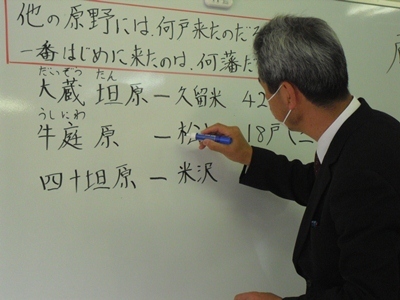 他の原野には、何戸来たのだろ
一番はじめに来たのは、何藩だ
だいぞう たん
大蔵 垣原 ー 久留米 42
うしにわ
牛庭 原 ー 松 18戸(二
四十垣原 ー 米沢